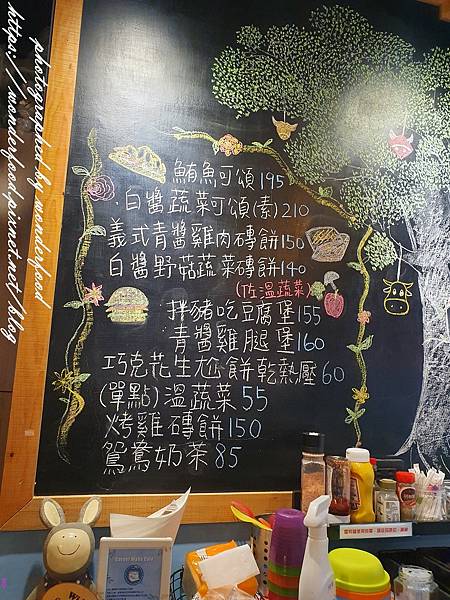 photographed by wonderfood
https://wonderfood.pixnet.net/blog
鮪魚可頌195
白醬蔬菜可頌(素)210
義式青醬雞肉磚餅150
白醬野菇蔬菜磚餅140
(佐溫蔬菜)
拌豬吃豆腐堡155
青醬雞腿堡160
巧克花生尬餅乾熱壓60
(單點)溫蔬菜55
烤雞磚餅150
鴛鴦奶茶85